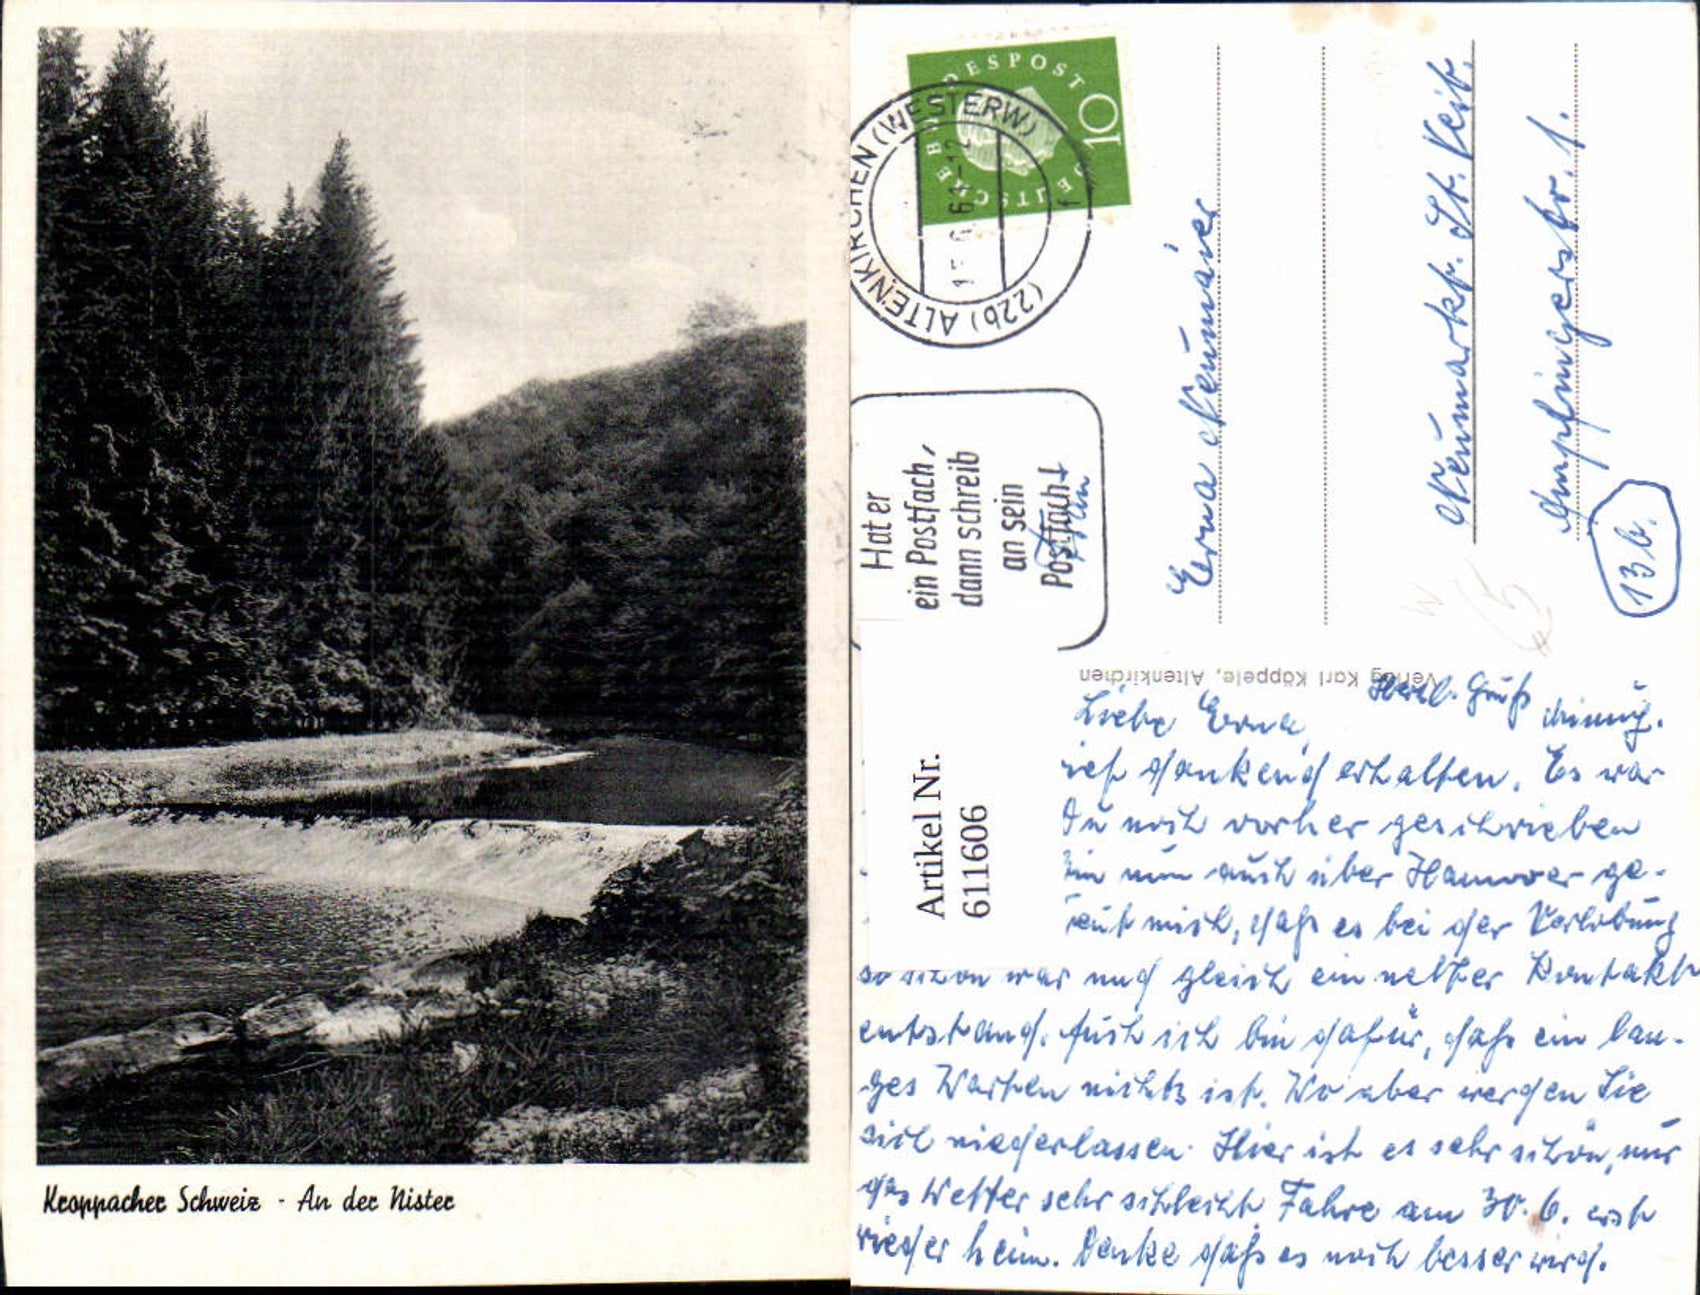 Kroppacher Schweiz - An der Nister
DEUTSCHE BUNDESPOST
10
(22b) ALTENKIRCHEN (WESTERW)
Hat er
ein Postfach,
dann schreib
an sein
Postfach
Erna Neumaier
Neumarkt. St. Veit.
13b.
Verlag Karl Käppele, Altenkirchen
Artikel Nr.
611606
Herzl. Gruß
Liebe Erna,
dankend erhalten. Es war
Du noch vorher geschrieben
nun auch über Hannover ge-
mich, daß es bei der Verlobung
so schon war und gleich ein netter Kontakt
entstand. Auch ich bin dafür, daß ein lan-
ges Warten nichts ist. Wo aber werden Sie
sich niederlassen. Hier ist es sehr schön, nur
das Wetter sehr schlecht. Fahre am 30. 6. erst
wieder heim. Denke daß es noch besser wird.